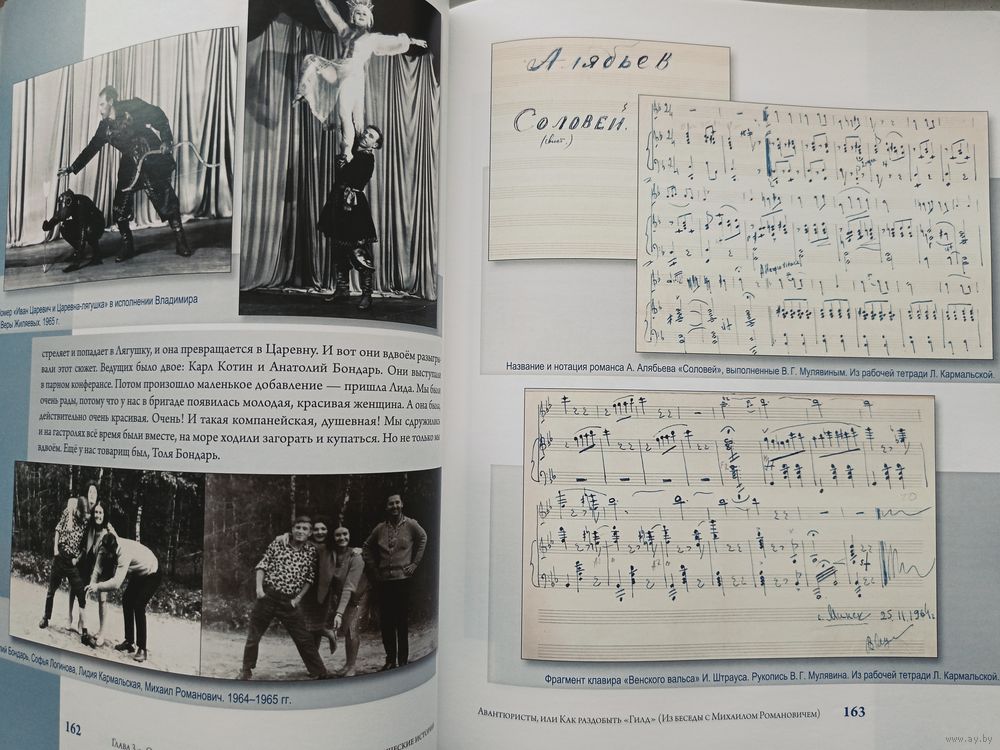 Номер «Иван Царевич и Царевна-лягушка» в исполнении Владимира
Веры Жиляевых. 1965 г.
стреляет и попадает в Лягушку, и она превращается в Царевну. И вот они вдвоём разыгры-
вали этот сюжет. Ведущих было двое: Карл Котин и Анатолий Бондарь. Они выступали
в парном конферансе. Потом произошло маленькое добавление — пришла Лида. Мы были
очень рады, потому что у нас в бригаде появилась молодая, красивая женщина. А она была
действительно очень красивая. Очень! И такая компанейская, душевная! Мы сдружились
и на гастролях всё время были вместе, на море ходили загорать и купаться. Но не только мы
вдвоём. Ещё у нас товарищ был, Толя Бондарь.
лий Бондарь, Софья Логинова, Лидия Кармальская, Михаил Романович. 1964–1965 гг.
162
Глава 3
ческие истории
Алябьев
Соловей.
Название и нотация романса А. Алябьева «Соловей», выполненные В. Г. Мулявиным. Из рабочей тетради Л. Кармальской.
г. Минск 25.11.1964г
Фрагмент клавира «Венского вальса» И. Штрауса. Рукопись В. Г. Мулявина. Из рабочей тетради Л. Кармальской.
Авантюристы, или Как раздобыть «Гилд» (Из беседы с Михаилом Романовичем) 163
www.ay.by